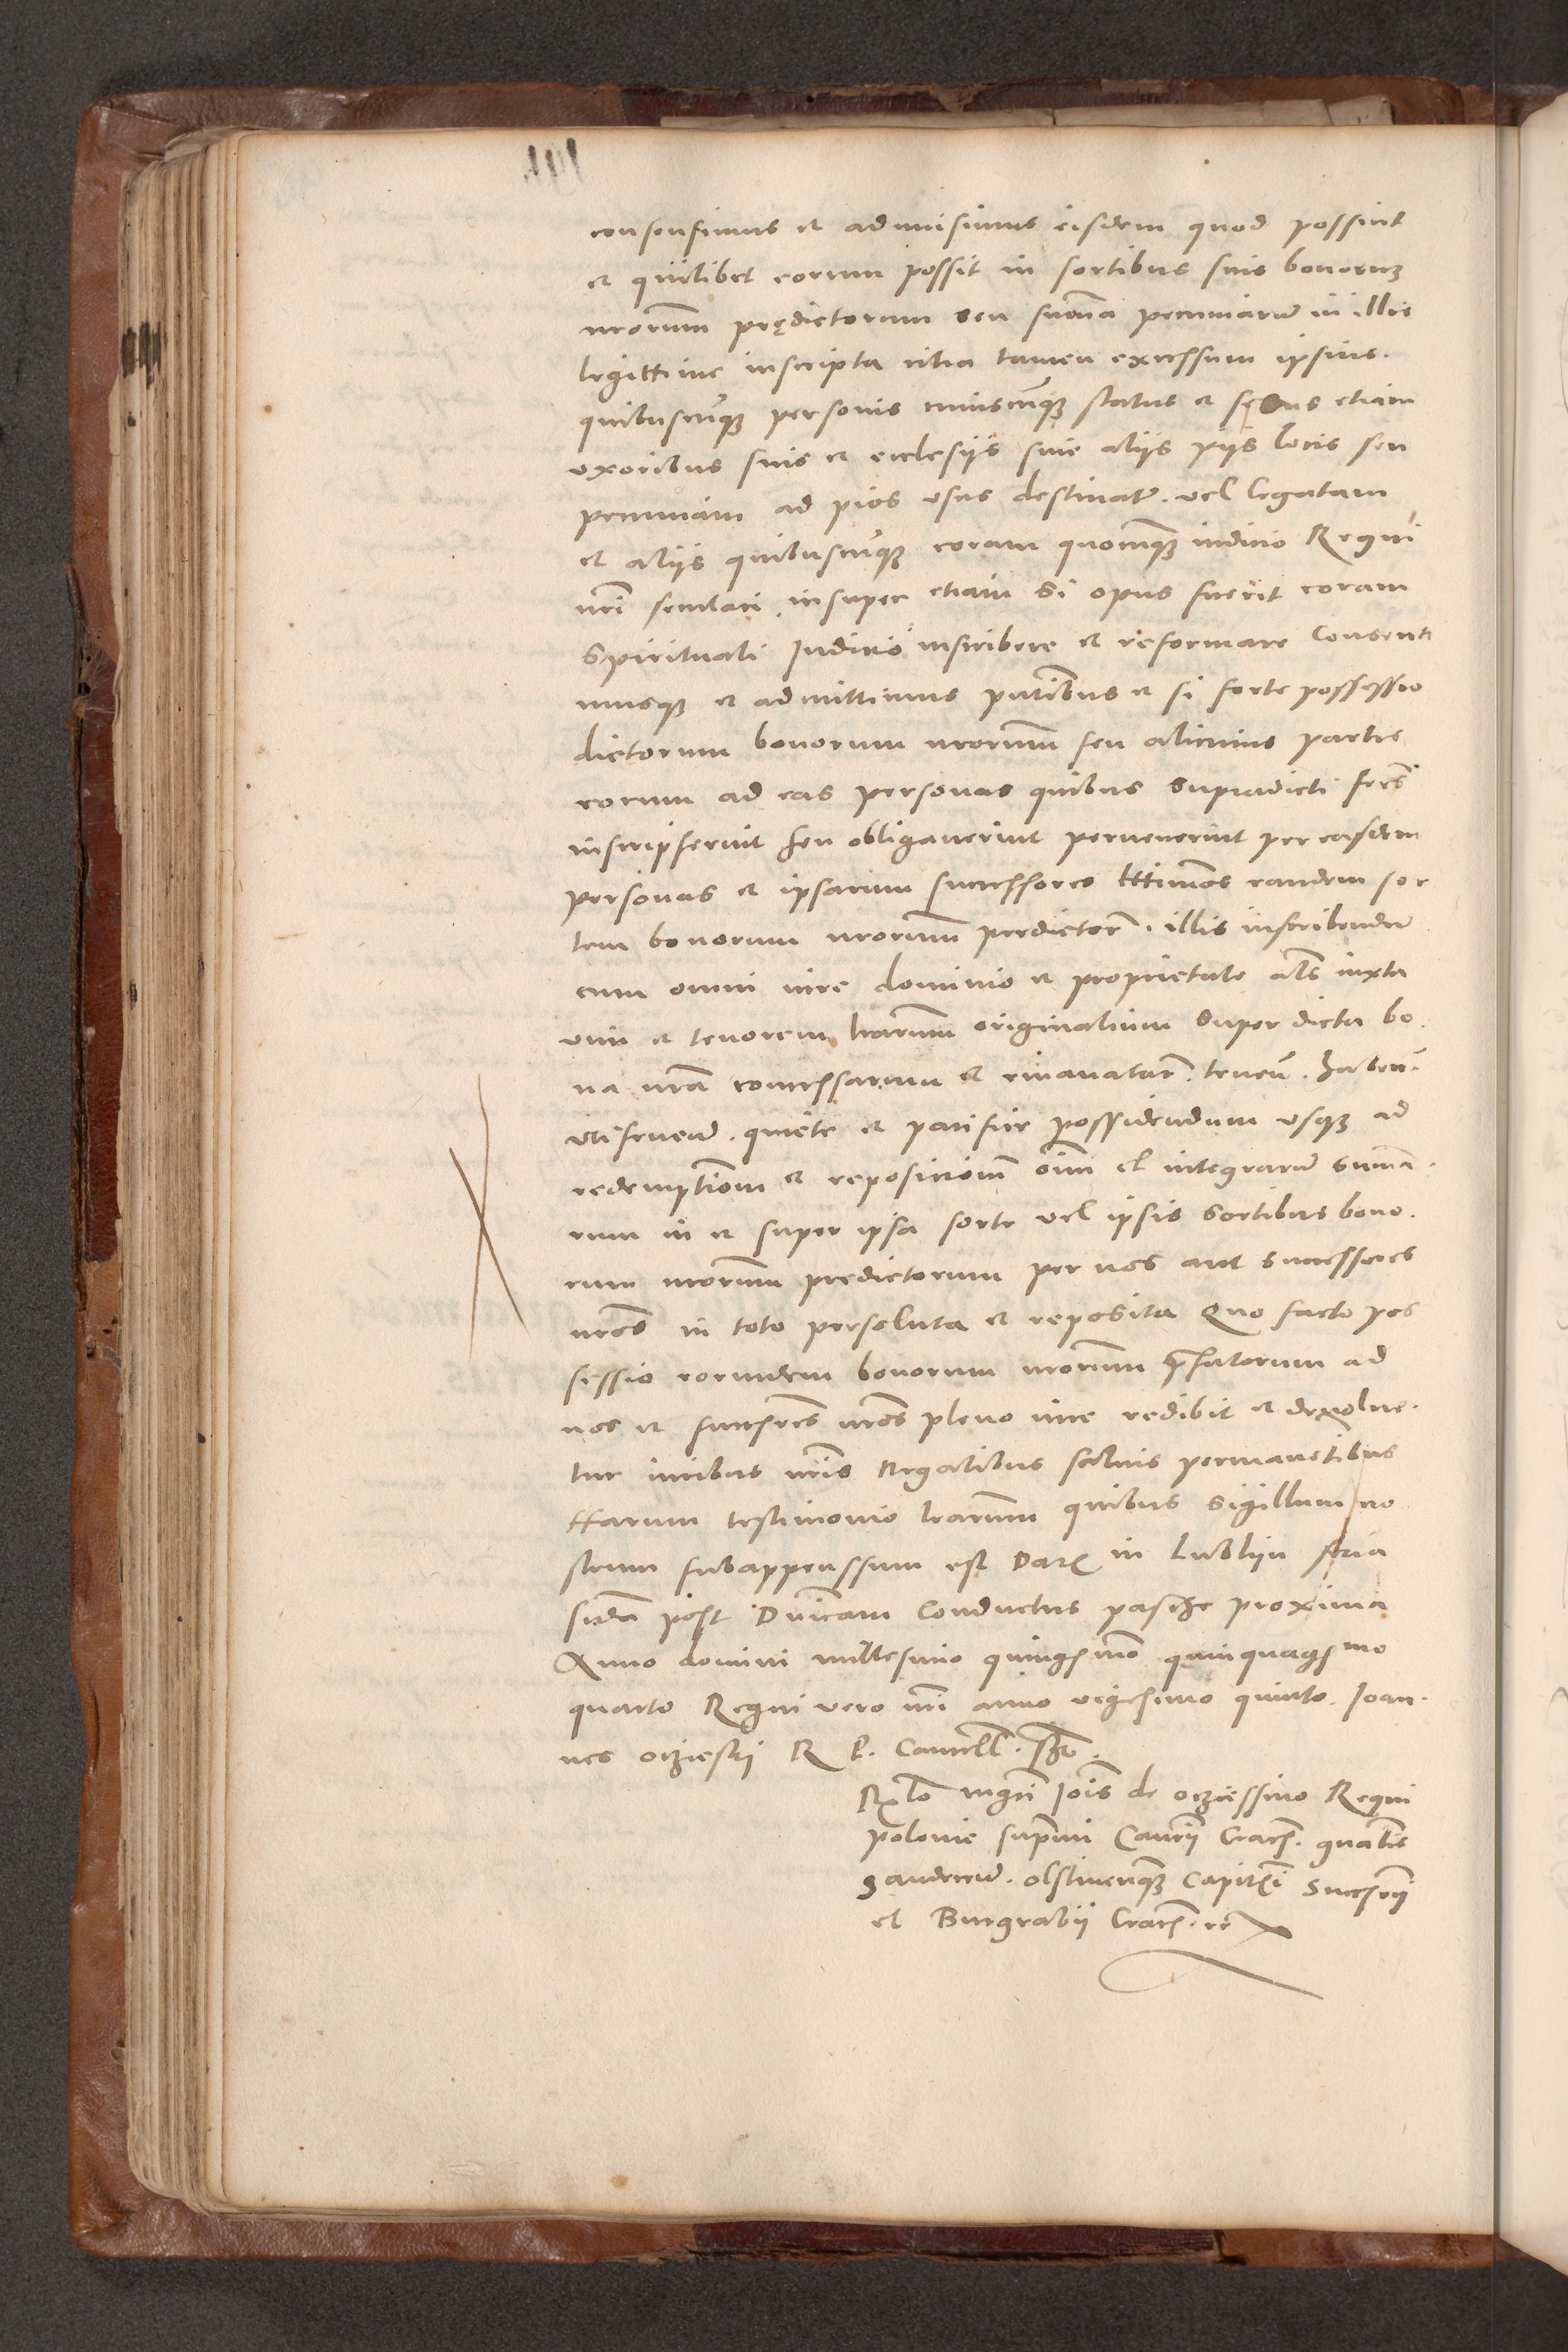 consensimus et admisimus eisdem quod possint
et quilibet eorum possit in sortibus suis bonorum
nrorum prędictorum seu summa pecuniarum in illis
legittime inscripta citra tamen excessum ipsius.
quibuscumque personis cuiuscumque status et sexus etiam
uxoribus suis et ecclesijs sive alijs pijs locis seu
pecuniam ad pios usus destinatam. vel legatam
et alijs quibuscumque coram quocumque iudicio Regni
nri seculari, insuper etiam si opus fuerit coram
spirituali Iudicio inscribere et reformare Consenti
musque et admittimus pntibus et si forte possessio
dictorum bonorum nrorum seu alicuius partis
eorum ad eas personas quibus supradicti fres
inscripserint seu obligaverint pervenerint per easdem
personas et ipsarum successores lttimos eandem sor
tem bonorum nrorum predictor. illis inscribendam
cum omni iure dominio et proprietate als iuxta
vim et tenorem lrarum originalium super dicta bo
na nra concessarum et emanatar. tenen. haben.
utifruend. quiete et pacifice possidendum usque ad
redemptionem et repositionem oim et integrarum summa.
rum in et super ipsa sorte vel ipsis sortibus bono.
rum nrorum predictorum per nos aut successores
nros in toto persoluta et reposita Quo facto pos
sessio eorundem bonorum nrorum prefatorum ad
nos et succres nros pleno iure redibit et devolve.
tur iuribus nris Regalibus salvis permanentibus
Harum testimonio lrarum quibus sigillum no
strum subappenssum est Dat in Lublijn feria
scda post Dnicam Conductus pasche proxima
Anno domini millesimo quingesimo quinquagesimo
quarto Regni vero nri anno vigesimo quinto. Ioan.
nes oczieskij R P. Cancell. sst.
Rlo mgci Iois de oczięssino Regni
polonie supmi Cancrij Cracs. gnalis
Sandecien. olstinensisque Capitnei Succrarij
et Burgrabij Cracs. etc